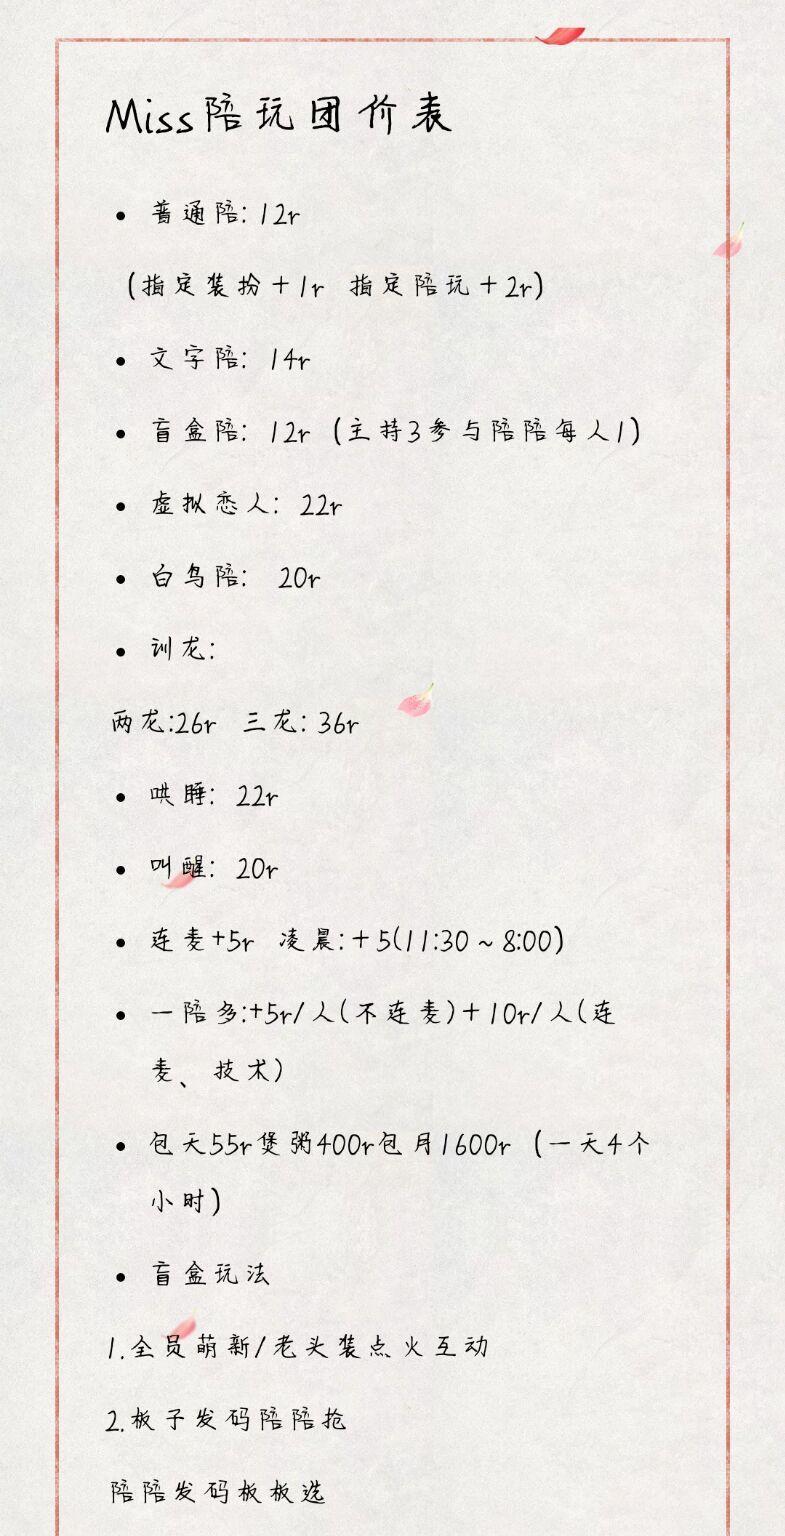 Miss陪玩团价表
• 普通陪: 12r
(指定装扮+1r 指定陪玩+2r)
• 文字陪: 14r
• 盲盒陪: 12r (主持3参与陪陪每人1)
• 虚拟恋人: 22r
• 白鸟陪: 20r
• 训龙:
两龙:26r 三龙: 36r
• 哄睡: 22r
• 叫醒: 20r
• 连麦+5r 凌晨:+5(11:30~8:00)
• 一陪多:+5r/人(不连麦)+10r/人(连
麦、技术)
• 包天55r煲粥400r包月1600r (一天4个
小时)
• 盲盒玩法
1.全员萌新/老头装点火互动
2.板子发码陪陪抢
陪陪发码板板选